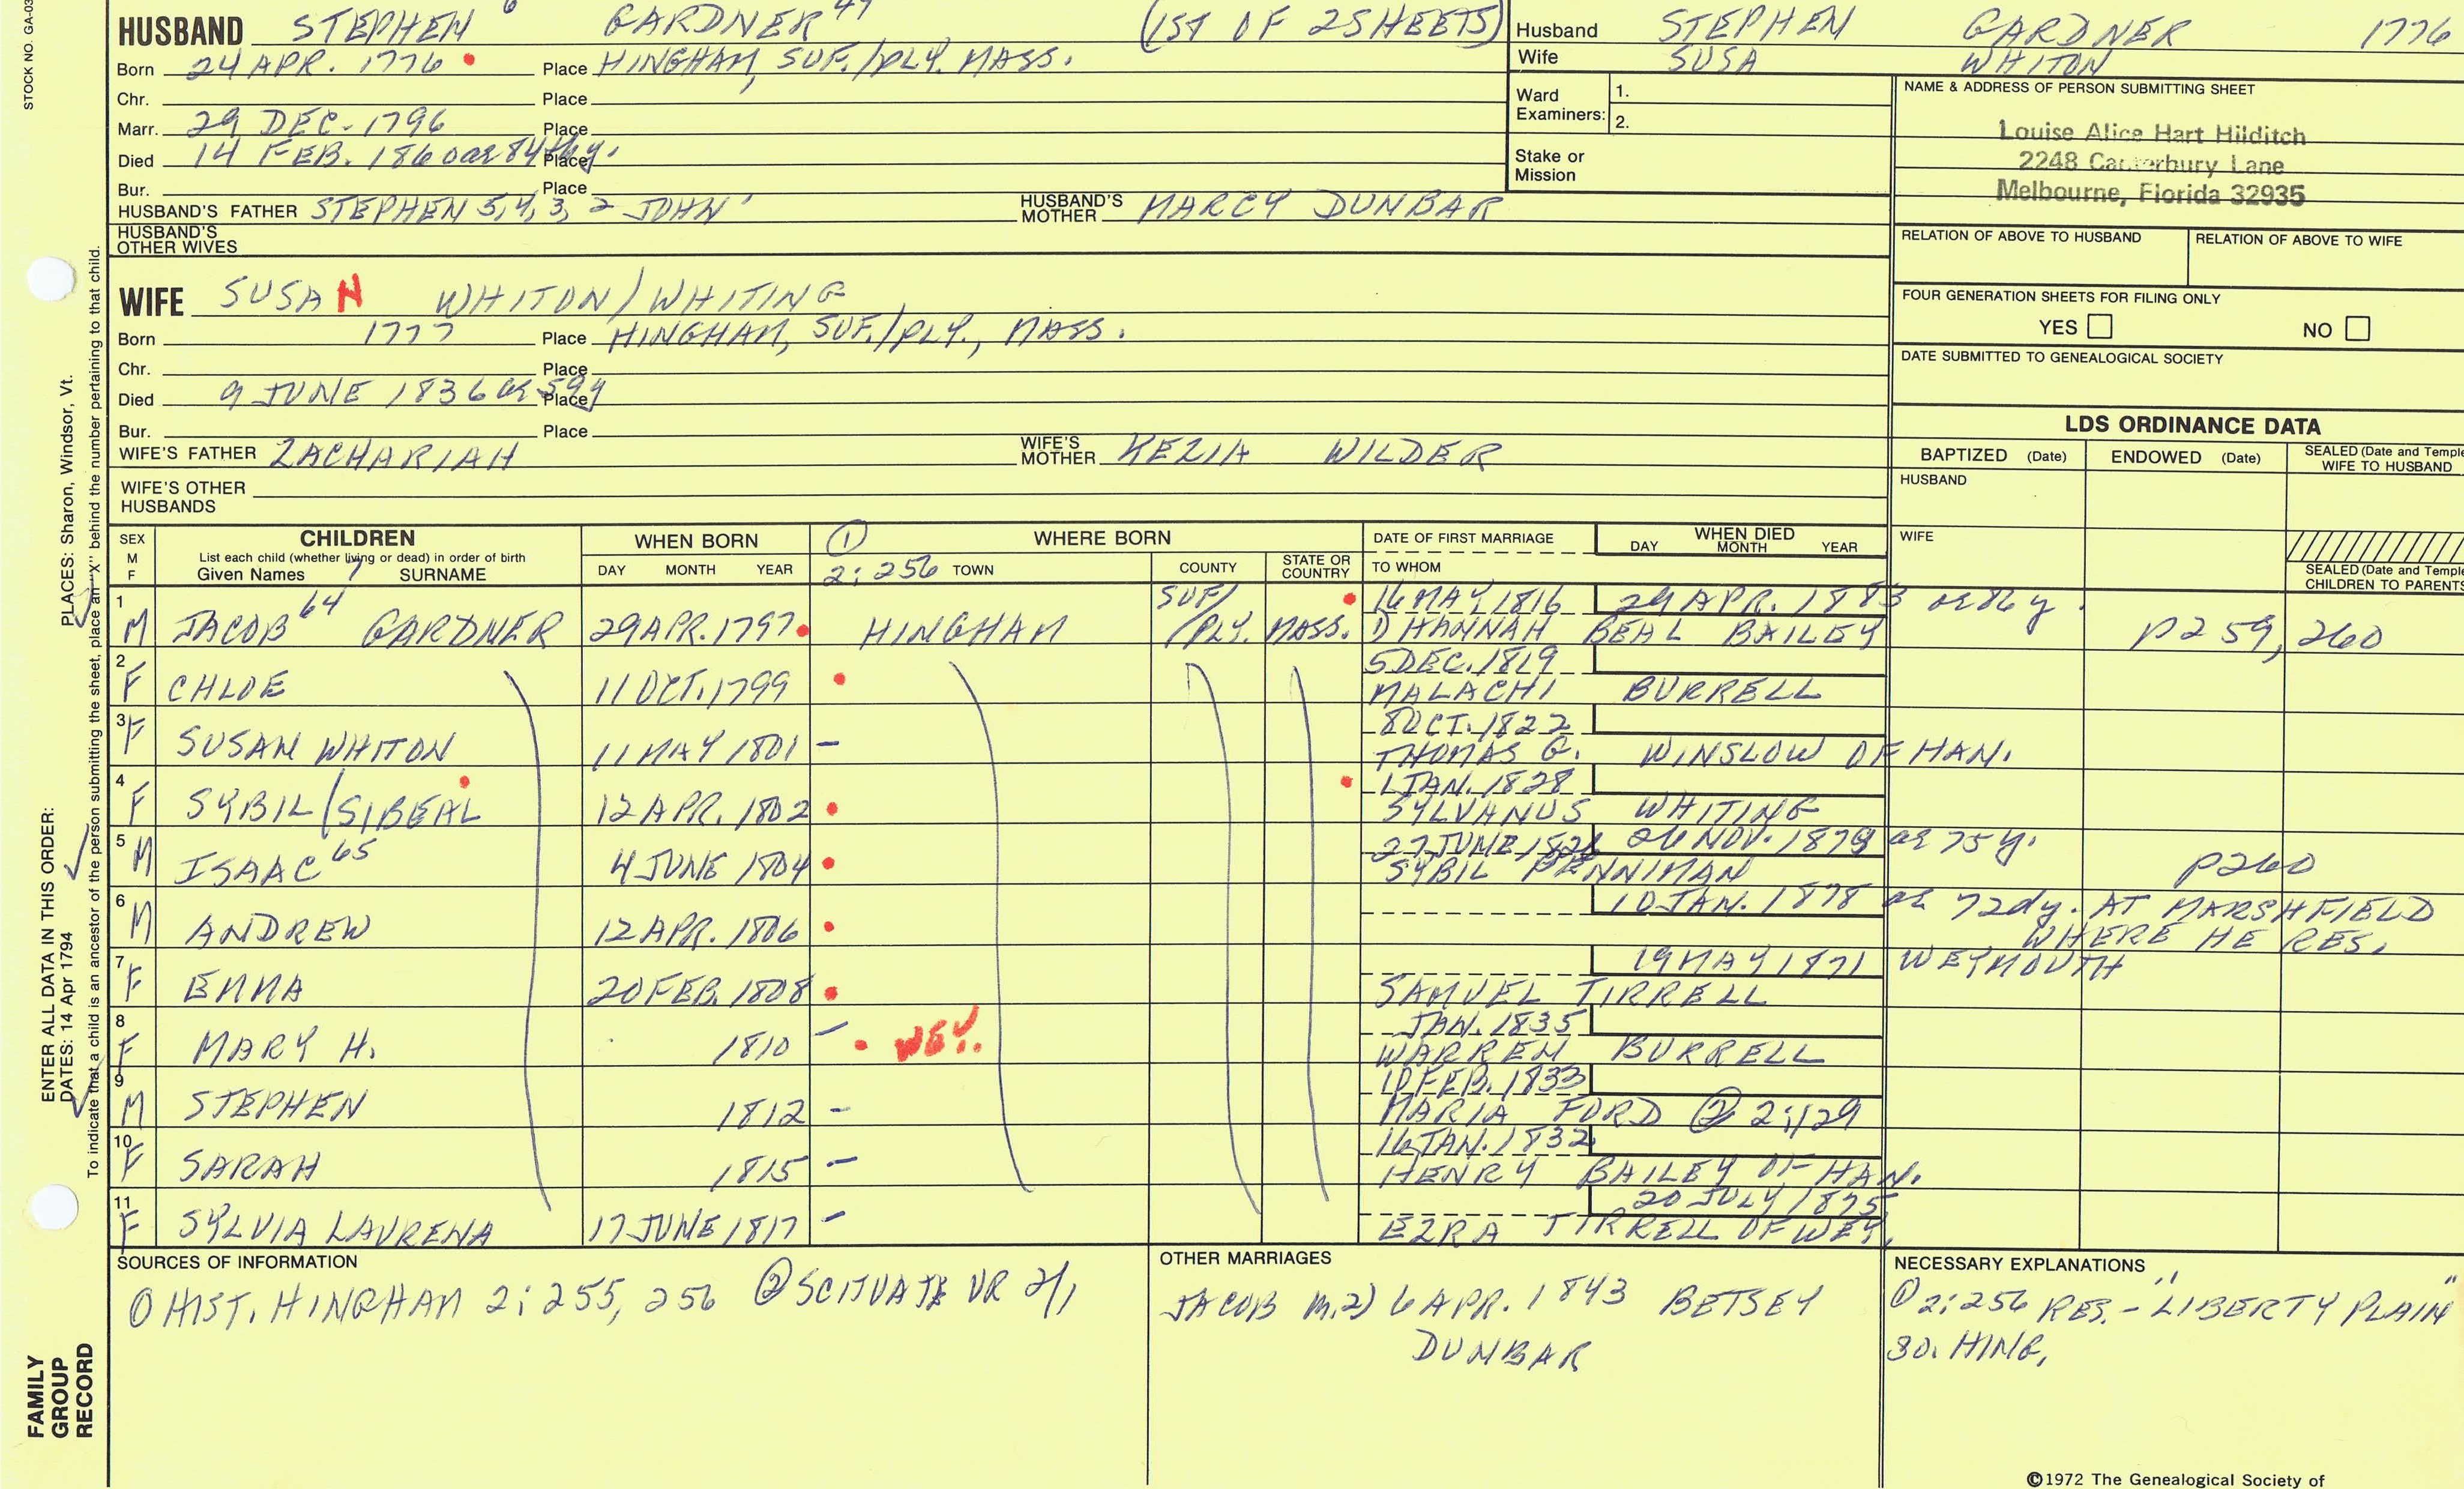 STOCK NO. GA-03
HUSBAND STEPHEN 6 GARDNER 47 (1ST OF 2 SHEETS)
Born 24 APR. 1776 Place HINGHAM, SUF./PLY. MASS.
Chr. Place
Marr. 29 DEC. 1796 Place
Died 14 FEB. 1860 ae 84thy. Place
Bur. Place
HUSBAND'S FATHER STEPHEN 5, 4, 3, 2 JOHN 1 HUSBAND'S MOTHER MARCY DUNBAR
HUSBAND'S OTHER WIVES
Husband STEPHEN GARDNER 1776
Wife SUSA WHITON
Ward Examiners: 1.
2.
Stake or Mission
NAME & ADDRESS OF PERSON SUBMITTING SHEET
Louise Alice Hart Hilditch
2248 Canterbury Lane
Melbourne, Florida 32935
RELATION OF ABOVE TO HUSBAND RELATION OF ABOVE TO WIFE
FOUR GENERATION SHEETS FOR FILING ONLY
YES NO
DATE SUBMITTED TO GENEALOGICAL SOCIETY
WIFE SUSAN WHITON/WHITING
Born 1777 Place HINGHAM, SUF./PLY., MASS.
Chr. Place
Died 9 JUNE 1836 ae 59y Place
Bur. Place
WIFE'S FATHER ZACHARIAH WIFE'S MOTHER KEZIA WILDER
WIFE'S OTHER HUSBANDS
LDS ORDINANCE DATA
BAPTIZED (Date) ENDOWED (Date) SEALED (Date and Temple WIFE TO HUSBAND
HUSBAND
WIFE
SEALED (Date and Temple CHILDREN TO PARENTS
SEX M F CHILDREN WHEN BORN ① WHERE BORN DATE OF FIRST MARRIAGE WHEN DIED
List each child (whether living or dead) in order of birth DAY MONTH YEAR
Given Names 7 SURNAME DAY MONTH YEAR 2:256 TOWN COUNTY STATE OR COUNTRY TO WHOM
1 SUF/ 16 MAY, 1816 29 APR. 1883 ae 86 y.
M JACOB 64 GARDNER 29 APR. 1797 HINGHAM /PLY. MASS. 1) HANNAH BEAL BAILEY P259, 260
2 5 DEC. 1819
F CHLOE 11 OCT. 1799 MALACHI BURRELL
3 8 OCT. 1822
F SUSAN WHITON 11 MAY 1801 – THOMAS G. WINSLOW OF HAN.
4 1 JAN. 1828
F SYBIL/SIBEAL 12 APR. 1802 SYLVANUS WHITING
5 27 JUNE, 26 NOV. 1879 ae 75 y.
M ISAAC 65 4 JUNE 1804 SYBIL PENNIMAN P260
6 10 JAN. 1878 ae 72dy. AT MARSHFIELD
M ANDREW 12 APR. 1806 WHERE HE RES.
7 19 MAY 1871 WEYMOUTH
F EMMA 20 FEB. 1808 SAMUEL TIRRELL
8 JAN. 1835
F MARY H. 1810 – WEY. WARREN BURRELL
9 10 FEB. 1833
M STEPHEN 1812 – MARIA FORD ② 2:129
10 16 JAN. 1832
F SARAH 1815 – HENRY BAILEY OF HAN.
11 20 JULY 1875
F SYLVIA LAURENA 17 JUNE 1817 – EZRA TIRRELL OF WEY.
SOURCES OF INFORMATION
① HIST. HINGHAM 2:255, 256 ② SCITUATE VR 2/1
OTHER MARRIAGES
JACOB m. 2) 6 APR. 1843 BETSEY
DUNBAR
NECESSARY EXPLANATIONS
① 2:256 RES. – "LIBERTY PLAIN"
SO. HING.
©1972 The Genealogical Society of
PLACES: Sharon, Windsor, Vt.
ENTER ALL DATA IN THIS ORDER:
DATES: 14 Apr 1794
To indicate that a child is an ancestor of the person submitting the sheet, place an "X" behind the number pertaining to that child.
FAMILY GROUP RECORD